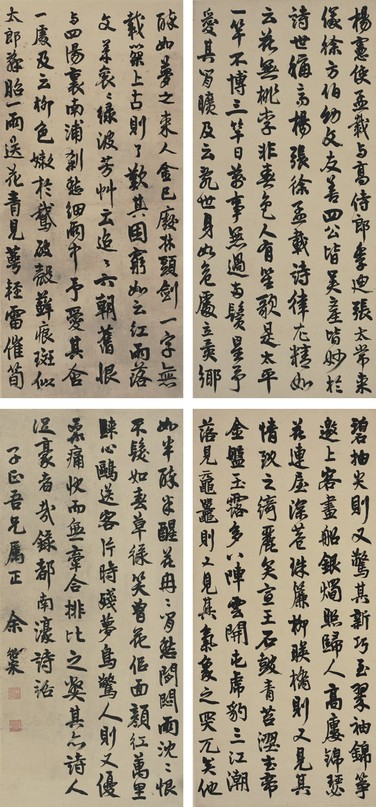 楊憲使孟載与高侍郎季迪張太常來
儀徐方伯幼文友善四公皆吳產皆妙於
詩世稱高楊張徐孟載詩律尤精如
云花無桃李非春色人有笙歌是太平
一竿不博三竿日萬事無過兩鬢星予
愛其閒曠及云亂世身如危處立異鄉
醉如夢之來人金已廢牀頭劍一字無
載 上占則了歎其困窮如云紅雨落
衰綠波芳艸 六朝舊恨
与 陽裏南浦新愁細雨中予愛其含
及云柳色嫩於鵝破殼蘚痕斑似
胎一雨送花青見萼輕雷催筍
碧抽尖則又驚其新巧至翠袖錦箏
邀上客畫船銀燭照歸人高廔錦瑟
花連屋深巷珠簾柳暎橋則又見其
情致之綺麗矣宣王石鼓青苔澀武帝
金盤玉露多八陣雲開屯虎豹三江潮
落見黿鼉則又見其氣象之突兀矣他
如半醉半醒花冉冉 愁 悶雨沈恨
不髮如春草綠笑曾花 面顏紅萬里
歸心鷗送客片時殘夢鳥驚人則又優
柔痛快而無牽合排比之 其亦詩人
之豪者哉錄都南濠詩話
子正吾兄屬正 余